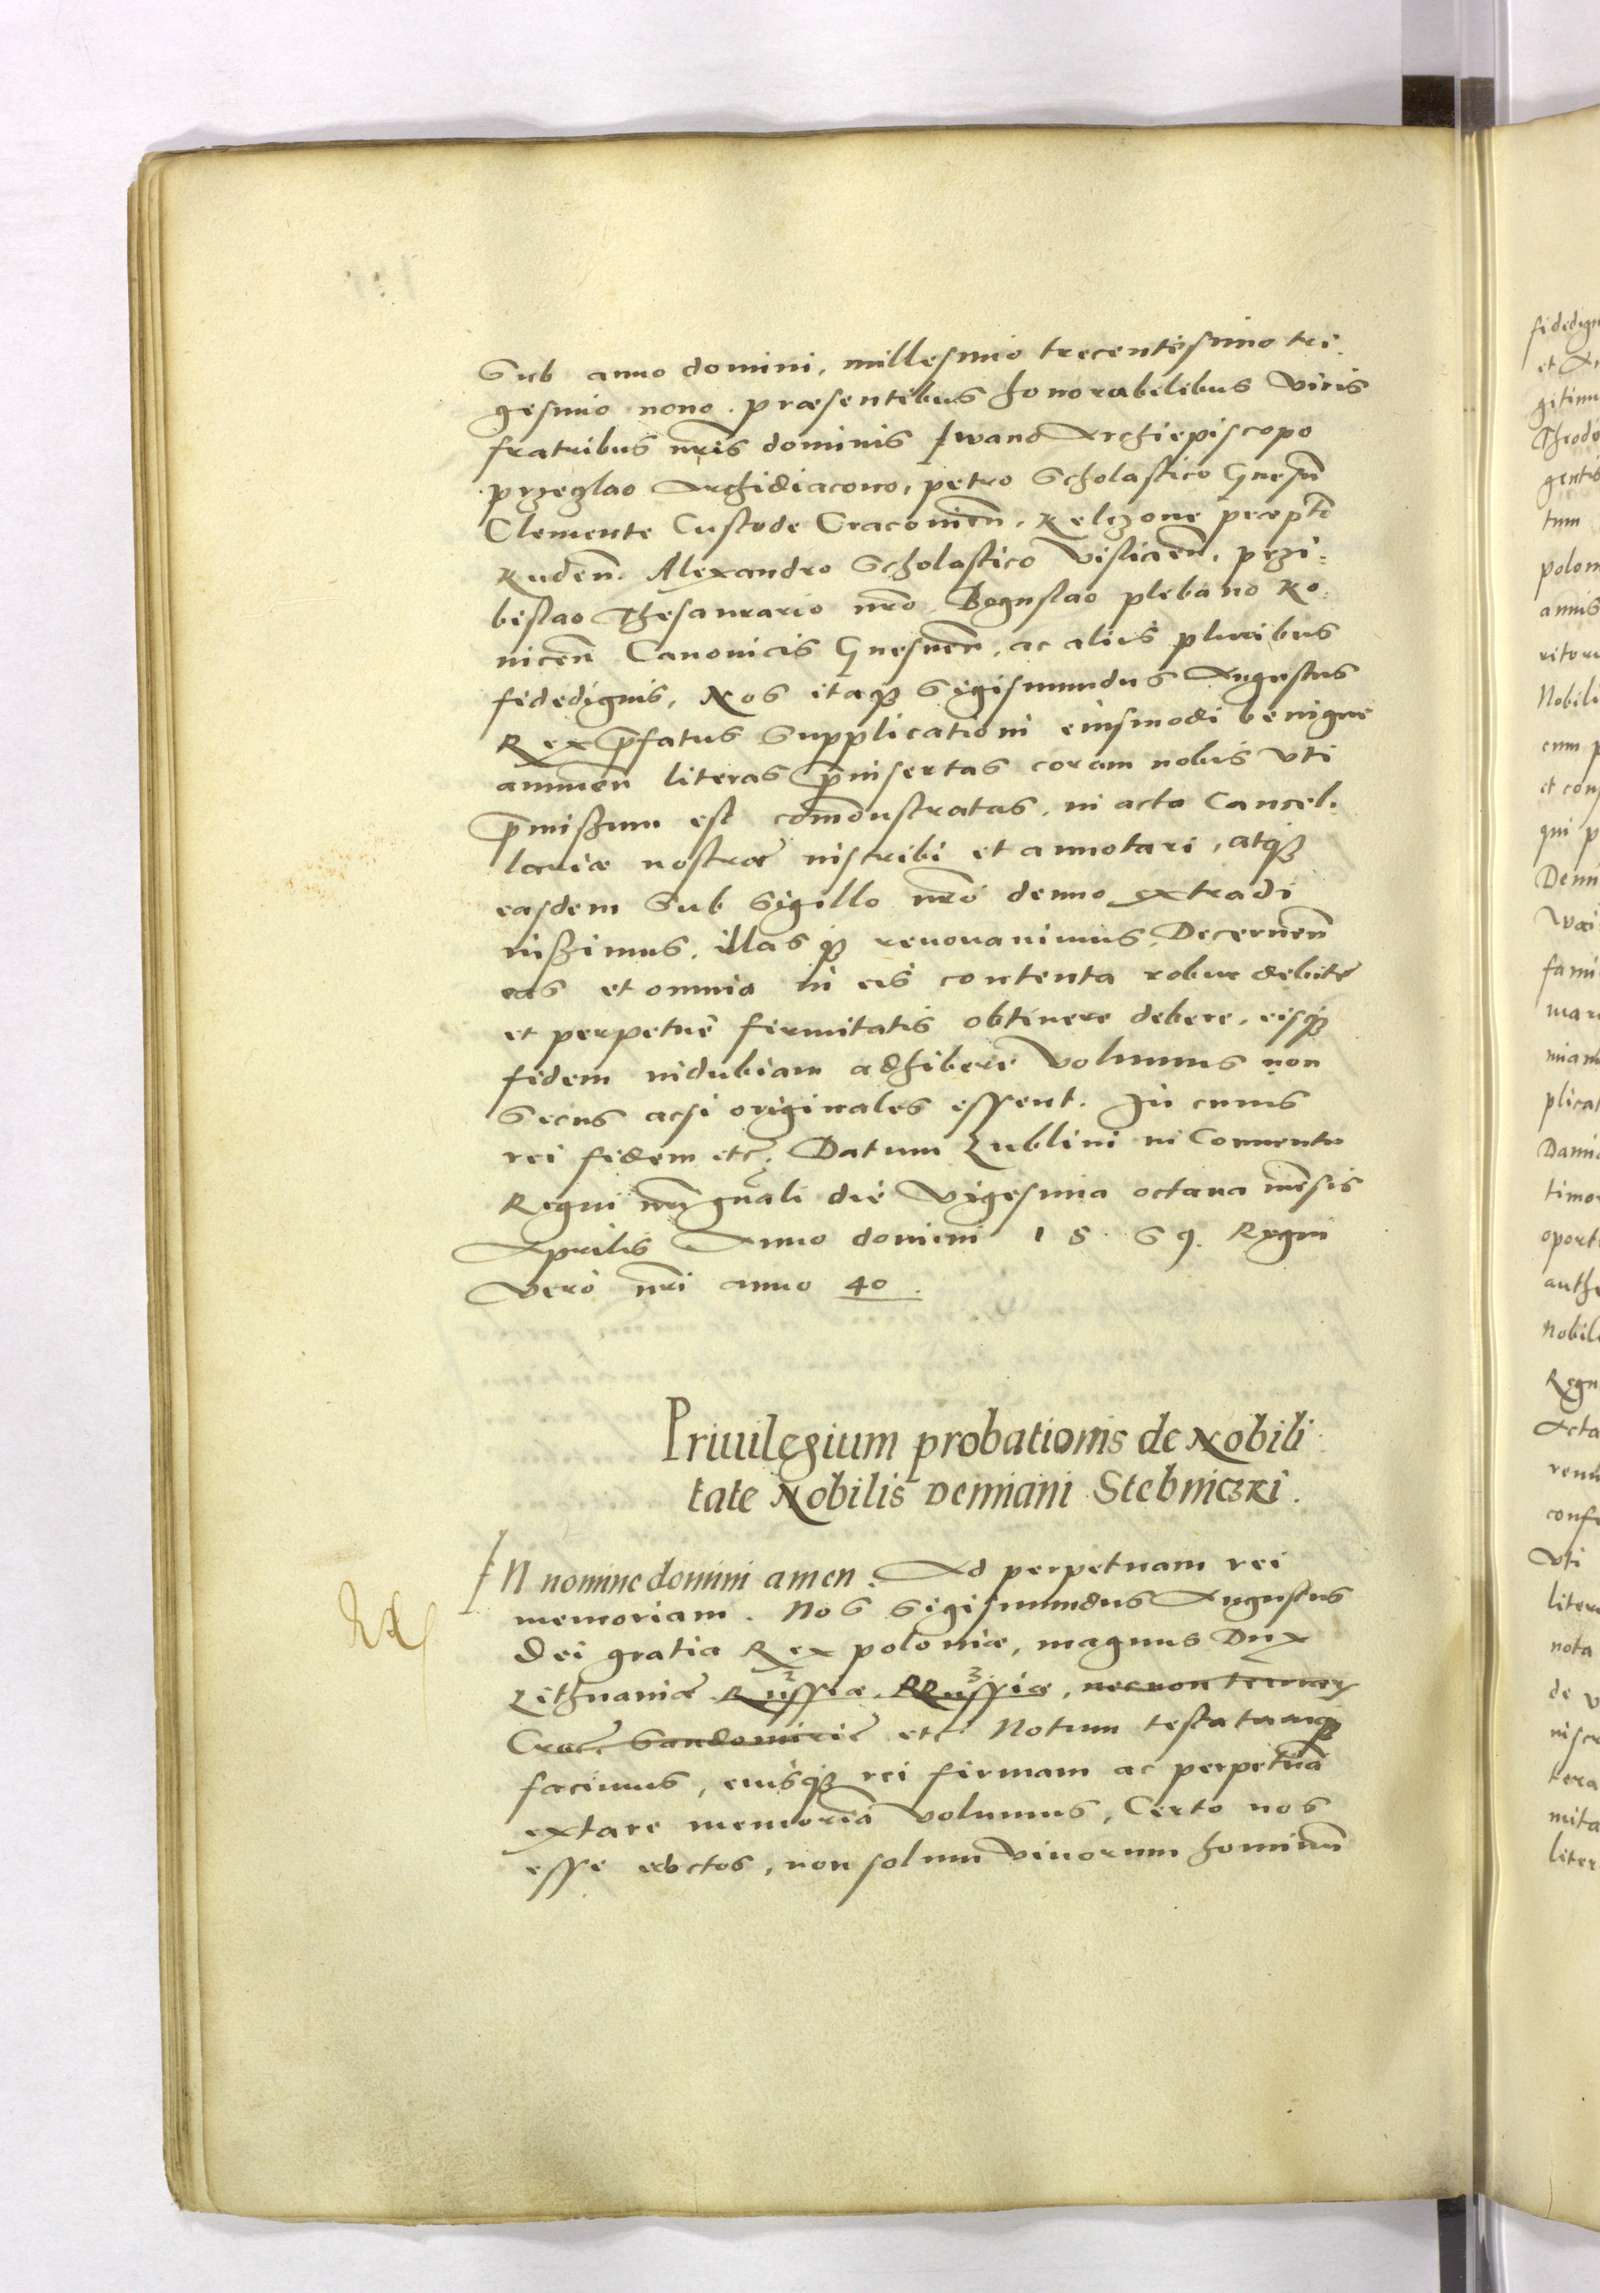 Sub anno domini, millesimo trecentesimo tri
gesimo nono. præsentibus honorabilibus viris
fratribus nr̄is dominis Iwano Archiepiscopo
przezlao Archidiacono, petro Scholastico Gnesn̄
Clemente Custode Cracouien̄. Kelczone præpt̄o
Ruden̄. Alexandro Scholastico Vislicien̄. przi-
bislao Thesaurario nr̄o. Boguslao plebano Ko-
nicen̄ Canonicis Gnesnen̄, ac aliis pluribus
fidedignis. Nos itaq3 Sigismundus Augustus
Rex p̄fatus Supplicationi eiusmodi benigne
annuen̄ literas p̄insertas coram nobis vti
p̄missum est com̄onstratas, in acta Cancel-
lariæ nostræ inscribi et annotari, atq3
easdem Sub Sigillo nr̄o denuo extradi
iussimus, illas q3 renouauimus. Decernen̄
eas et omnia in eis contenta robur debitę
et perpetuę firmitatis obtinere debere, eisq3
fidem indubiam adhiberi volumus non
Secus acsi originales essent. In cuius
rei fidem etc. Datum Lublini in Conuentu
Regni nr̄i gn̄ali die vigesima octaua men̄sis
Aprilis Anno domini 1569. Regni
vero nr̄i anno 40.
Priuilegium probationis de Nobili
tate Nobilis Demiani Stebniczki.
IN nomine domini amen. Ad perpetuam rei
memoriam. Nos Sigismundus Augustus
Dei gratia Rex poloniæ, magnus Dux
Lithuaniæ Russiæ 2. PRussiæ 3, necnon terrarū
Crac. Sandomirię etc Notum testatumq3
facimus, eiusq3 rei firmam ac perpetuā
extare memoriā volumus, Certo nos
esse edoctos, non solum viuorum hominū